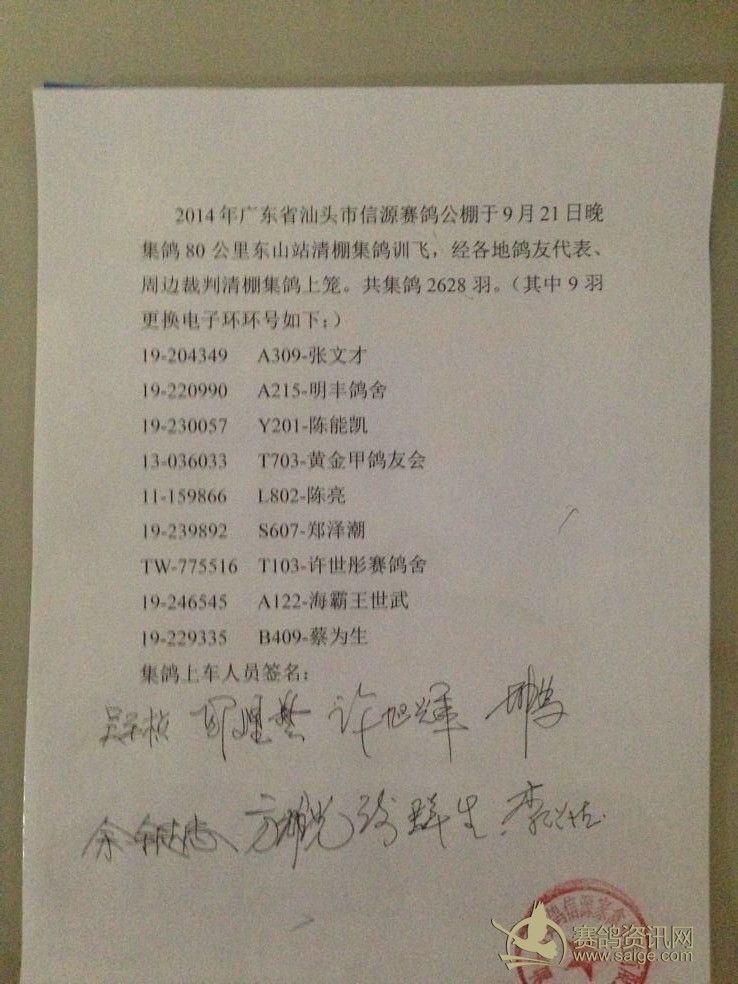 2014年广东省汕头市信源赛鸽公棚于9月21日晚
集鸽80公里东山站清棚集鸽训飞，经各地鸽友代表、
周边裁判清棚集鸽上笼。共集鸽2628羽。（其中9羽
更换电子环环号如下:）
19-204349 A309-张文才
19-220990 A215-明丰鸽舍
19-230057 Y201-陈能凯
13-036033 T703-黄金甲鸽友会
11-159866 L802-陈亮
19-239892 S607-郑泽潮
TW-775516 T103-许世彤赛鸽舍
19-246545 A122-海霸王世武
19-229335 B409-蔡为生
集鸽上车人员签名：
许旭辉
群生
鸽信源
赛鸽资讯网
www.saige.com